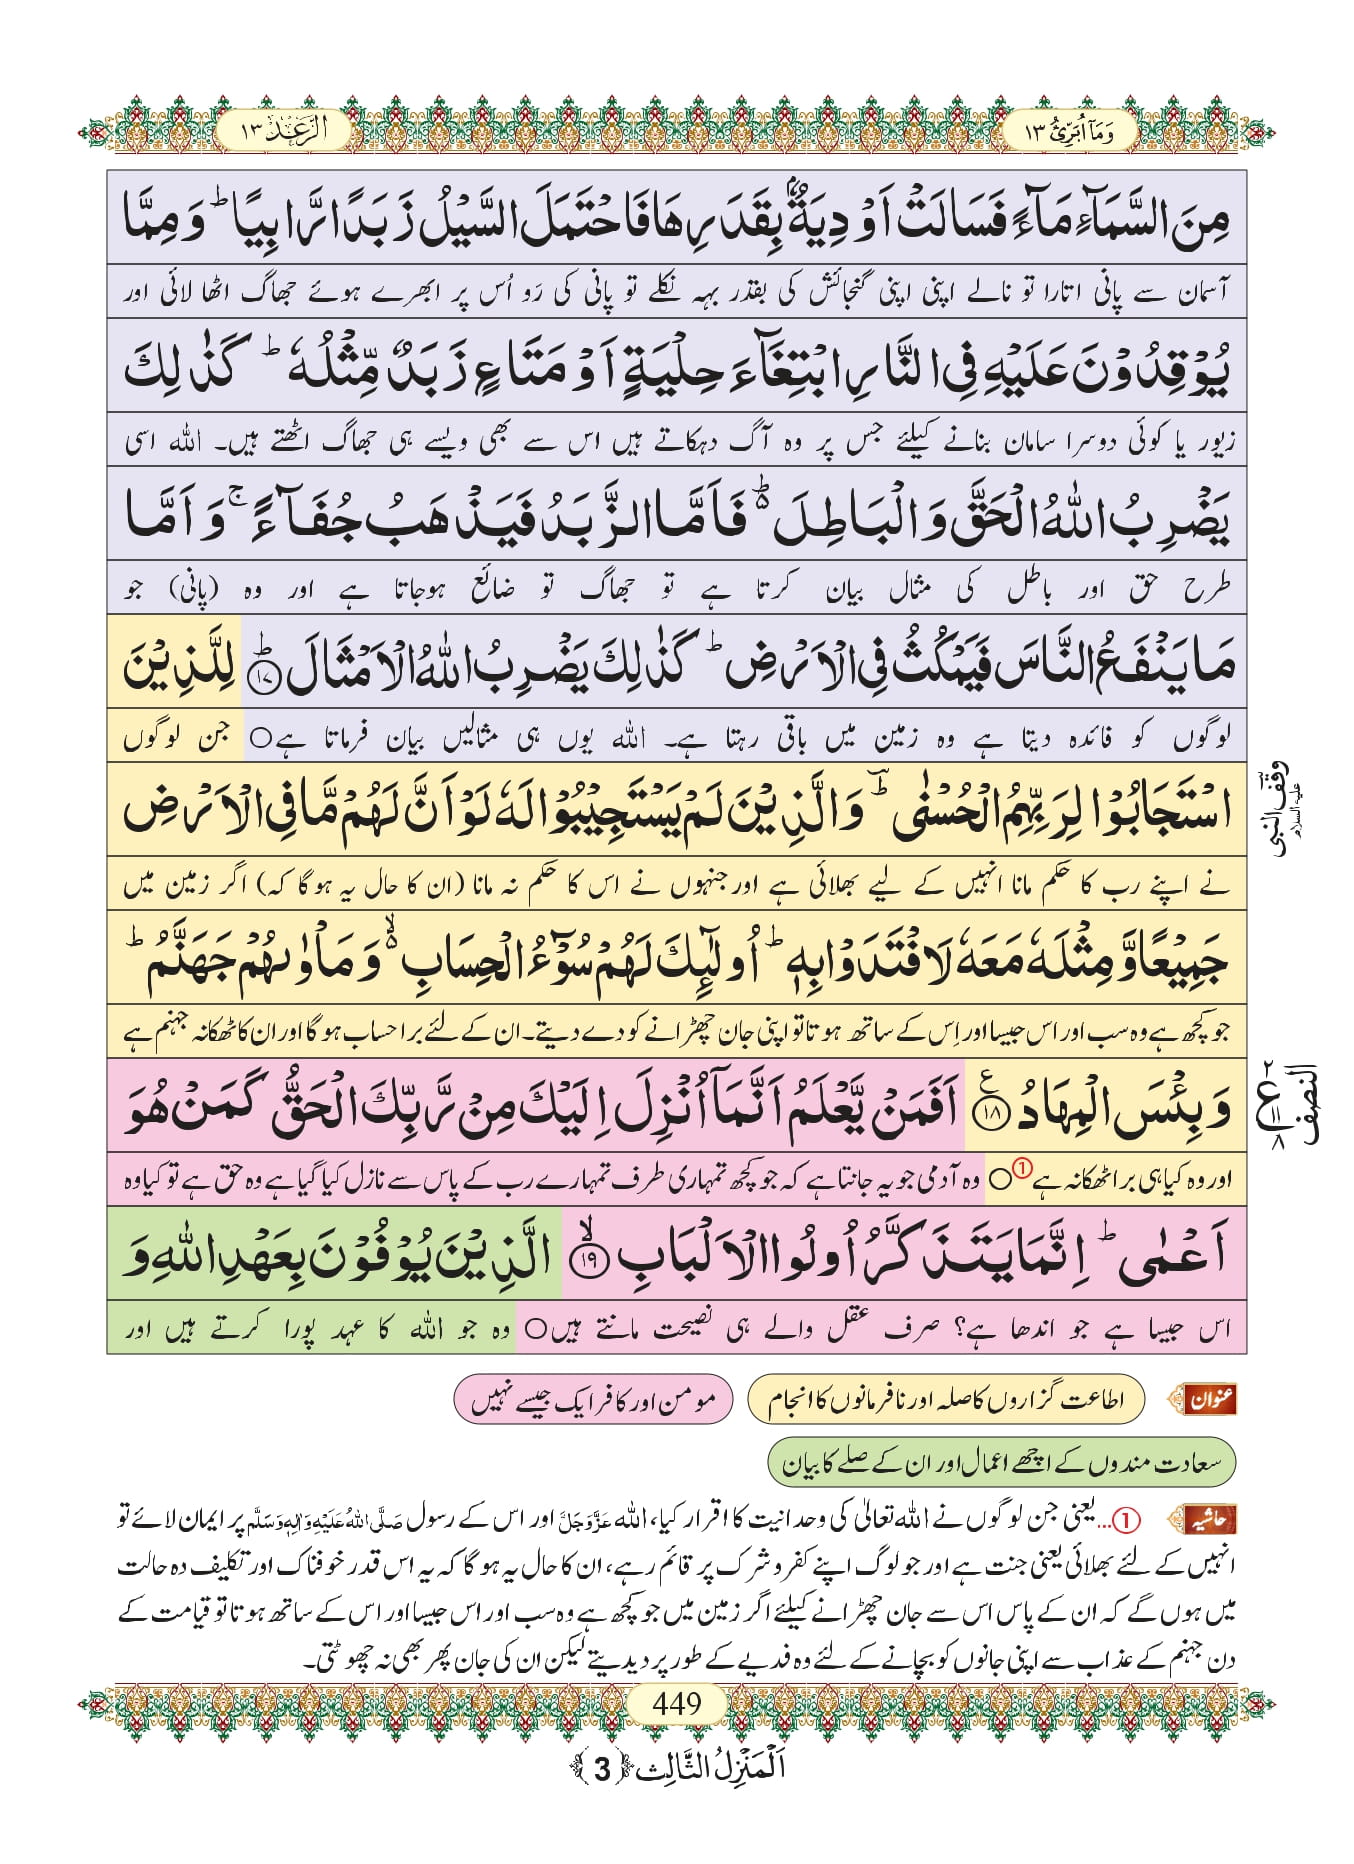 وَمَاۤ اُبَرِّئُ ١٣
الرَّعْد ١٣
مِنَ السَّمَآءِ مَآءً فَسَالَتْ اَوْدِیَةٌۢ بِقَدَرِهَا فَاحْتَمَلَ السَّیْلُ زَبَدًا رَّابِیًاؕ وَ مِمَّا
آسمان سے پانی اتارا تو نالے اپنی اپنی گنجائش کی بقدر بہہ نکلے تو پانی کی رَو اُس پر ابھرے ہوئے جھاگ اٹھا لائی اور
یُوْقِدُوْنَ عَلَیْهِ فِی النَّارِ ابْتِغَآءَ حِلْیَةٍ اَوْ مَتَاعٍ زَبَدٌ مِّثْلُهٗؕ كَذٰلِكَ
زیور یا کوئی دوسرا سامان بنانے کیلئے جس پر وہ آگ دہکاتے ہیں اس سے بھی ویسے ہی جھاگ اٹھتے ہیں۔ اللہ اسی
یَضْرِبُ اللّٰهُ الْحَقَّ وَ الْبَاطِلَ۬ؕ فَاَمَّا الزَّبَدُ فَیَذْهَبُ جُفَآءًۚ وَ اَمَّا
طرح حق اور باطل کی مثال بیان کرتا ہے تو جھاگ تو ضائع ہوجاتا ہے اور وہ (پانی) جو
مَا یَنْفَعُ النَّاسَ فَیَمْكُثُ فِی الْاَرْضِؕ كَذٰلِكَ یَضْرِبُ اللّٰهُ الْاَمْثَالَؕ ﴿١٧﴾ لِلَّذِیْنَ
لوگوں کو فائدہ دیتا ہے وہ زمین میں باقی رہتا ہے۔ اللہ یوں ہی مثالیں بیان فرماتا ہے ○ جن لوگوں
اسْتَجَابُوْا لِرَبِّهِمُ الْحُسْنٰىؕ وَ الَّذِیْنَ لَمْ یَسْتَجِیْبُوْا لَهٗ لَوْ اَنَّ لَهُمْ مَّا فِی الْاَرْضِ
وقف النبی علیہ السلام
نے اپنے رب کا حکم مانا انہیں کے لیے بھلائی ہے اور جنہوں نے اس کا حکم نہ مانا (ان کا حال یہ ہوگا کہ) اگر زمین میں
جَمِیْعًا وَّ مِثْلَهٗ مَعَهٗ لَافْتَدَوْا بِهٖؕ اُولٰٓىِٕكَ لَهُمْ سُوْٓءُ الْحِسَابِ۬ۙ وَ مَاْوٰىهُمْ جَهَنَّمُؕ
جو کچھ ہے وہ سب اور اس جیسا اور اِس کے ساتھ ہوتا تو اپنی جان چھڑانے کو دے دیتے۔ ان کے لئے برا حساب ہوگا اور ان کا ٹھکانہ جہنم ہے
وَ بِئْسَ الْمِهَادُ ﴿١٨﴾ ع اَفَمَنْ یَّعْلَمُ اَنَّمَاۤ اُنْزِلَ اِلَیْكَ مِنْ رَّبِّكَ الْحَقُّ كَمَنْ هُوَ
النصف
٢ ع ١١ ٨
اور وہ کیا ہی برا ٹھکانہ ہے① ○ وہ آدمی جو یہ جانتا ہے کہ جو کچھ تمہاری طرف تمہارے رب کے پاس سے نازل کیا گیا ہے وہ حق ہے تو کیا وہ
اَعْمٰىؕ اِنَّمَا یَتَذَكَّرُ اُولُوا الْاَلْبَابِۙ ﴿١٩﴾ الَّذِیْنَ یُوْفُوْنَ بِعَهْدِ اللّٰهِ وَ
اس جیسا ہے جو اندھا ہے؟ صرف عقل والے ہی نصیحت مانتے ہیں ○ وہ جو اللہ کا عہد پورا کرتے ہیں اور
عنوان اطاعت گزاروں کا صلہ اور نافرمانوں کا انجام مومن اور کافر ایک جیسے نہیں
سعادت مندوں کے اچھے اعمال اور ان کے صلے کا بیان
حاشیہ ①...یعنی جن لوگوں نے اللہ تعالیٰ کی وحدانیت کا اقرار کیا، اللہ عَزَّوَجَلَّ اور اس کے رسول صَلَّی اللہُ عَلَیْہِ وَاٰلِہٖ وَسَلَّم پر ایمان لائے تو
انہیں کے لئے بھلائی یعنی جنت ہے اور جو لوگ اپنے کفر و شرک پر قائم رہے، ان کا حال یہ ہوگا کہ یہ اس قدر خوفناک اور تکلیف دہ حالت
میں ہوں گے کہ ان کے پاس اس سے جان چھڑانے کیلئے اگر زمین میں جو کچھ ہے وہ سب اور اس جیسا اور اس کے ساتھ ہوتا تو قیامت کے
دن جہنم کے عذاب سے اپنی جانوں کو بچانے کے لئے وہ فدیے کے طور پر دیدیتے لیکن ان کی جان پھر بھی نہ چھوٹتی۔
449
اَلْمَنْزِلُ الثَّالِث ﴿3﴾